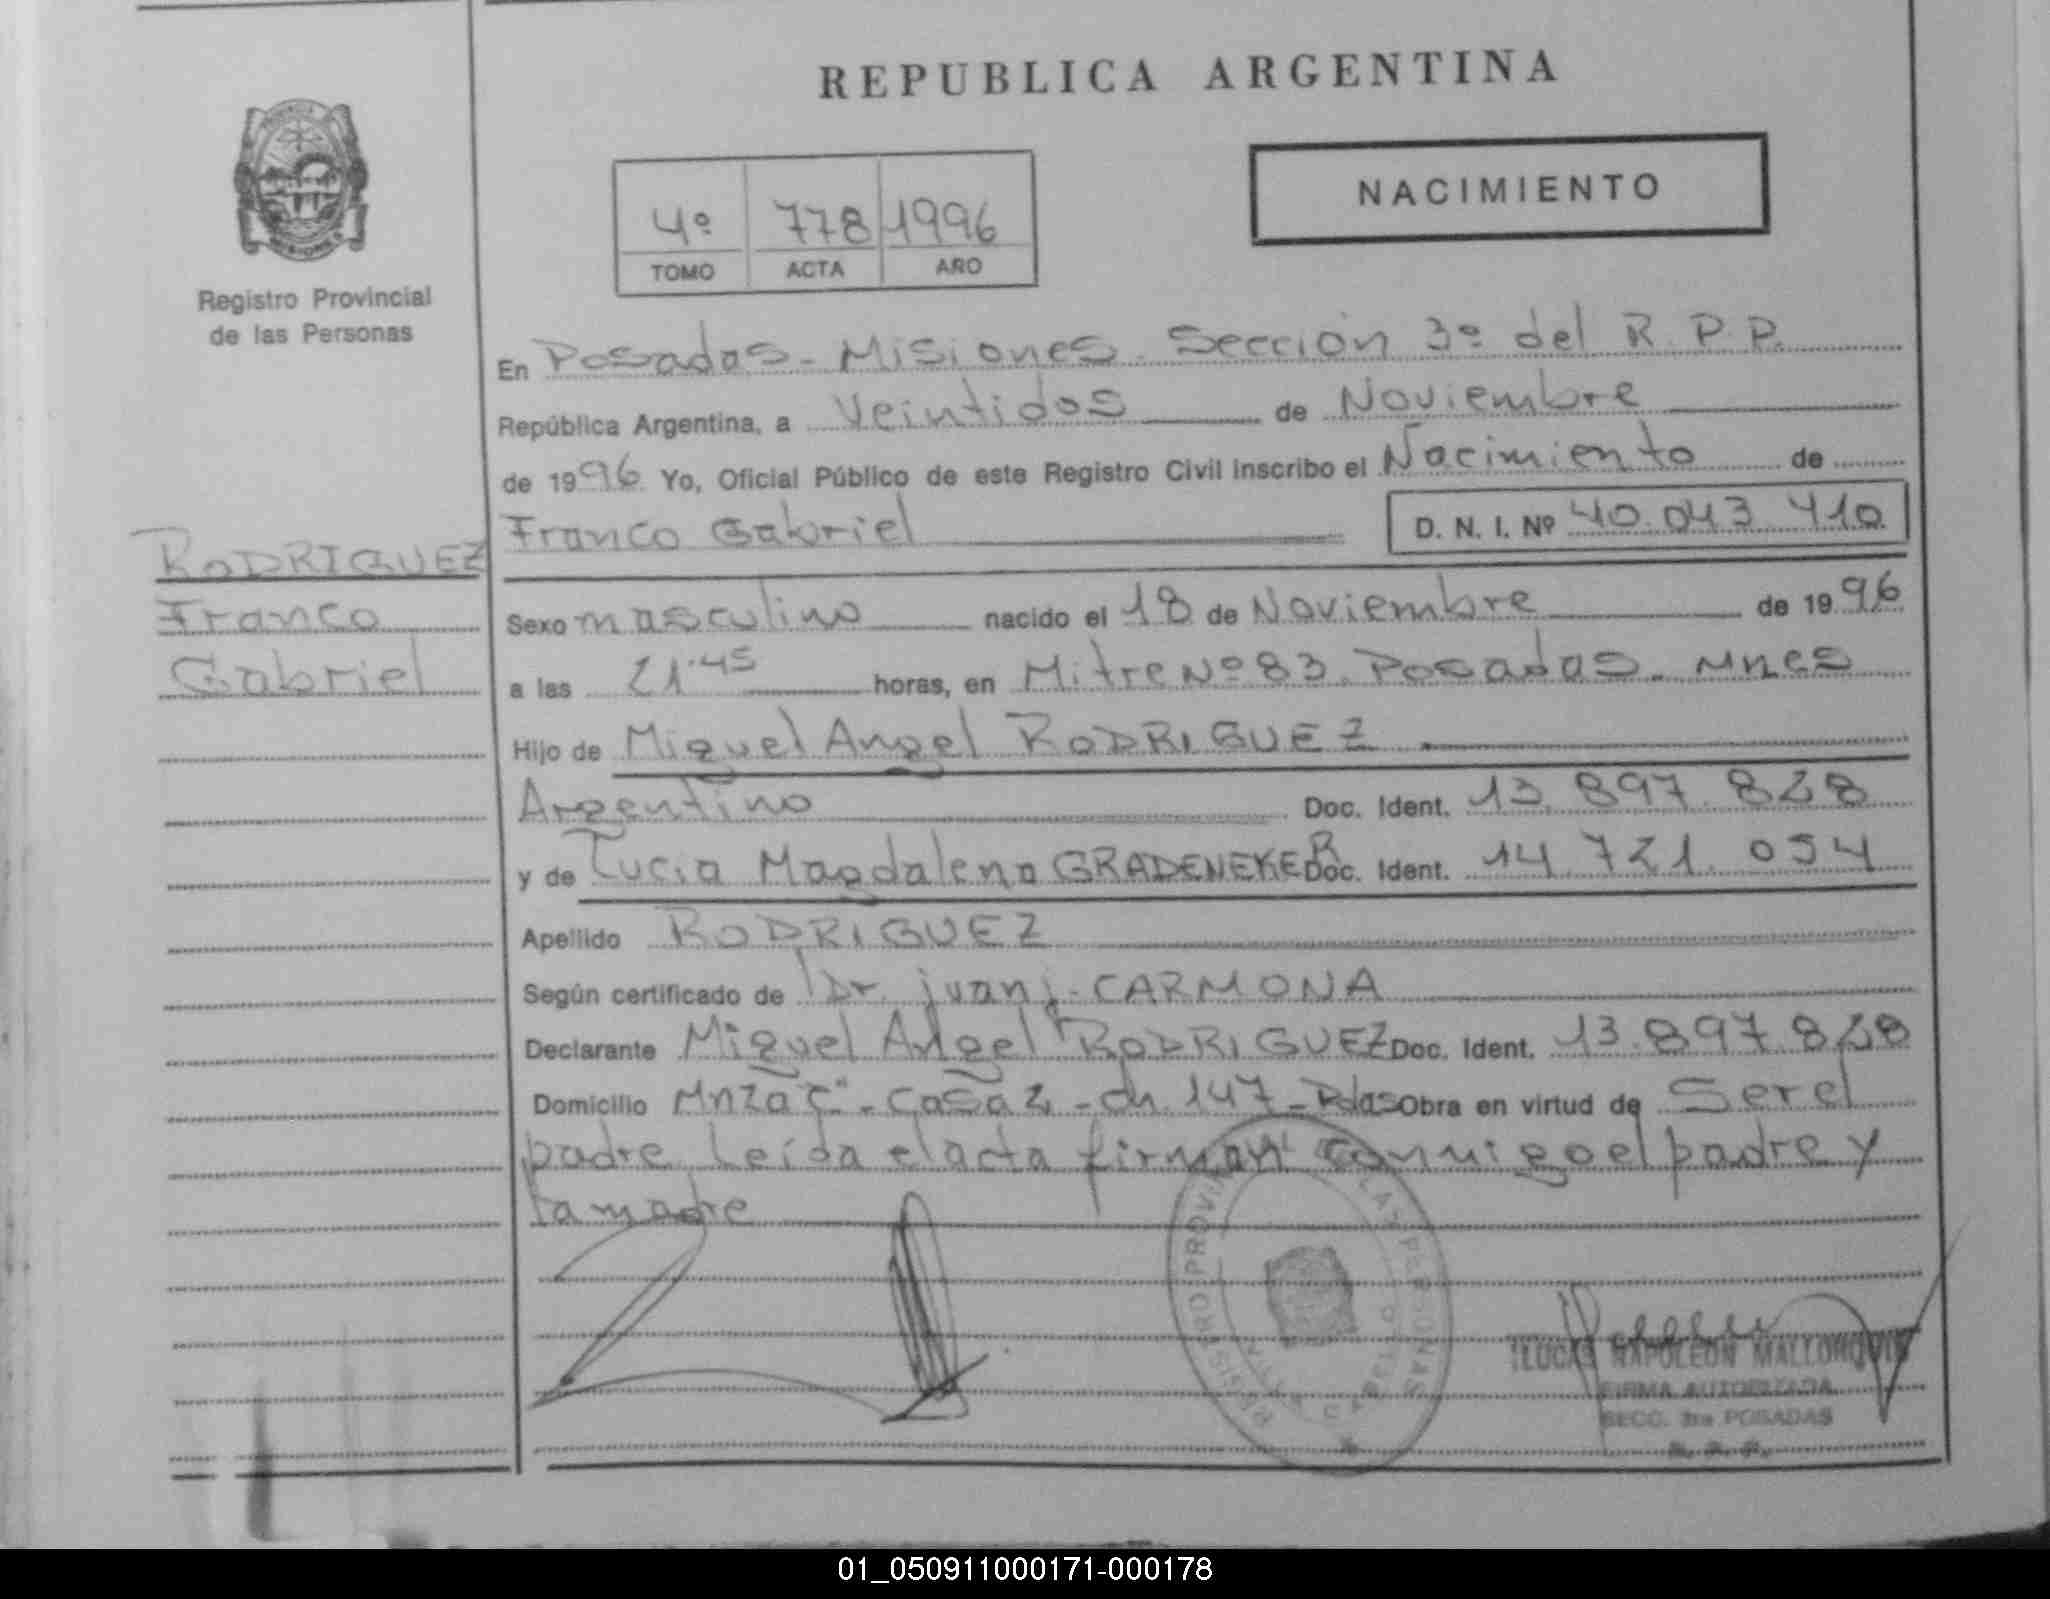 REPUBLICA ARGENTINA
NACIMIENTO
4º 778 1996
TOMO ACTA AÑO
Registro Provincial
de las Personas
En Posadas - Misiones Sección 3º del R.P.P.
República Argentina, a Veintidos de Noviembre
de 1996 Yo, Oficial Público de este Registro Civil inscribo el Nacimiento de
Franco Gabriel D. N. I. Nº 40.043 410
RODRIGUEZ
Franco
Gabriel
Sexo masculino nacido el 18 de Noviembre de 1996
a las 21.45 horas, en Mitre Nº 83. Posadas - Mnes
Hijo de Miguel Angel RODRIGUEZ
Argentino Doc. Ident. 13.897.828
y de Lucia Magdalena GRADENEKER Doc. Ident. 14 721.054
Apellido RODRIGUEZ
Según certificado de Dr. juan j. CARMONA
Declarante Miguel Angel RODRIGUEZ Doc. Ident. 13.897.828
Domicilio Mnza "C" - Casa 2 - ch 147 - Pdas Obra en virtud de Ser el
padre Leída el acta firman conmigo el padre y
la madre
REGISTRO PROVINCIAL LAS PERSONAS
LUCAS NAPOLEON MALLORQUIN
FIRMA AUTORIZADA
SECC. 3ra POSADAS
R. P. P.
01_050911000171-000178